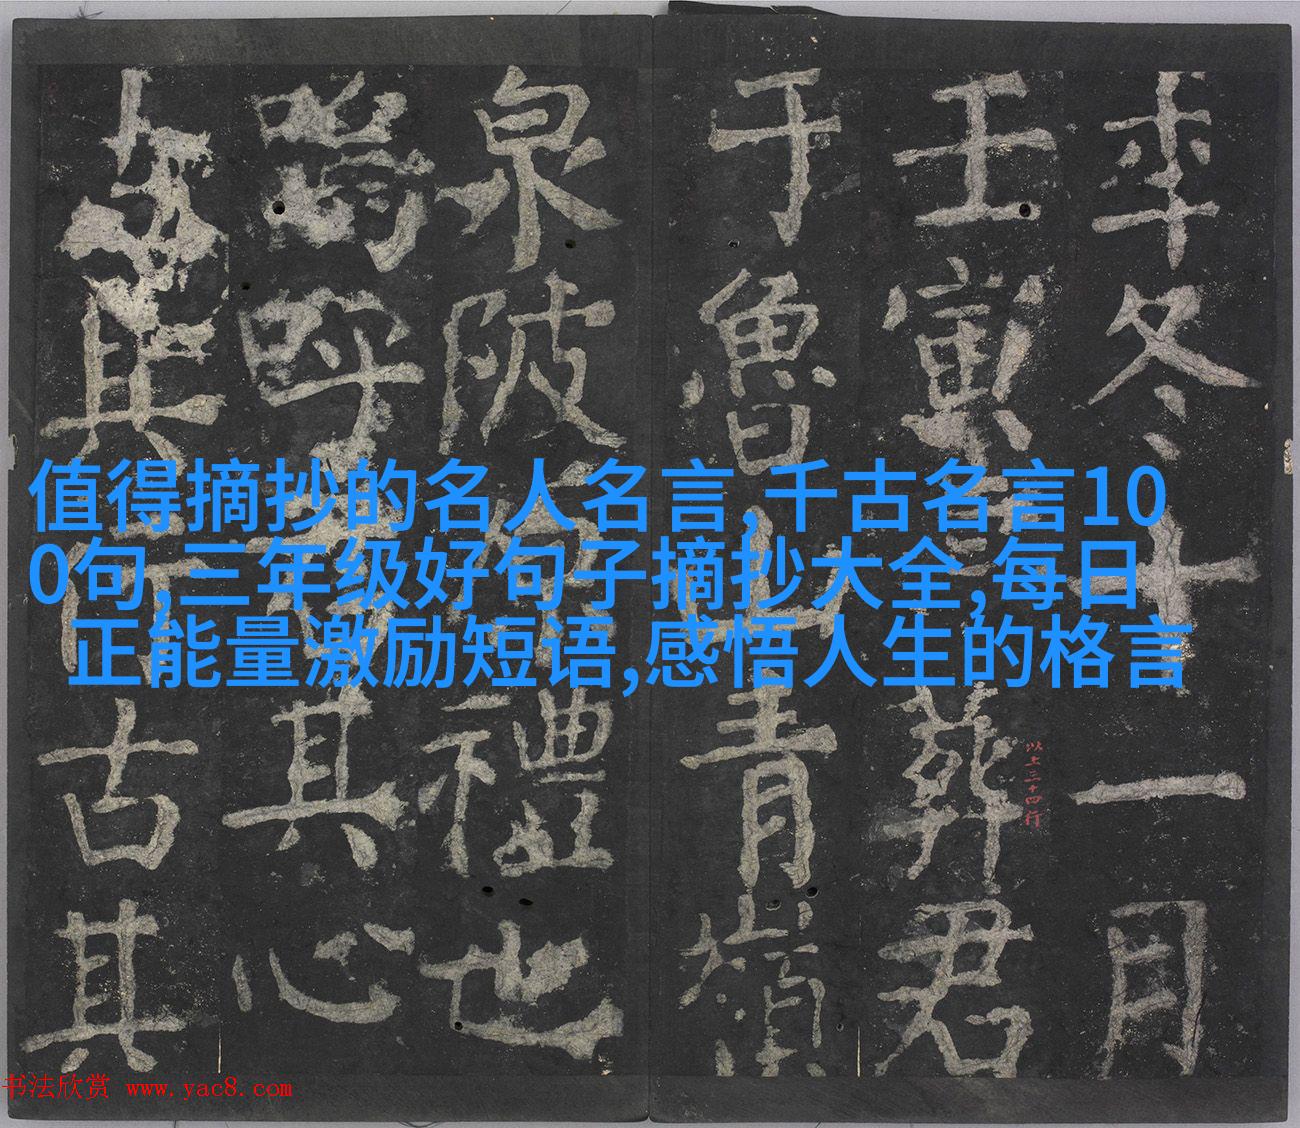 年冬十一月
壬寅葬君
于魯山青嶺
泉陂禮也
嗚呼其心
其古其
以上三十四行
值得摘抄的名人名言,千古名言10
0句,三年级好句子摘抄大全,每日
正能量激励短语,感悟人生的格言
书法欣赏 www.yac8.com